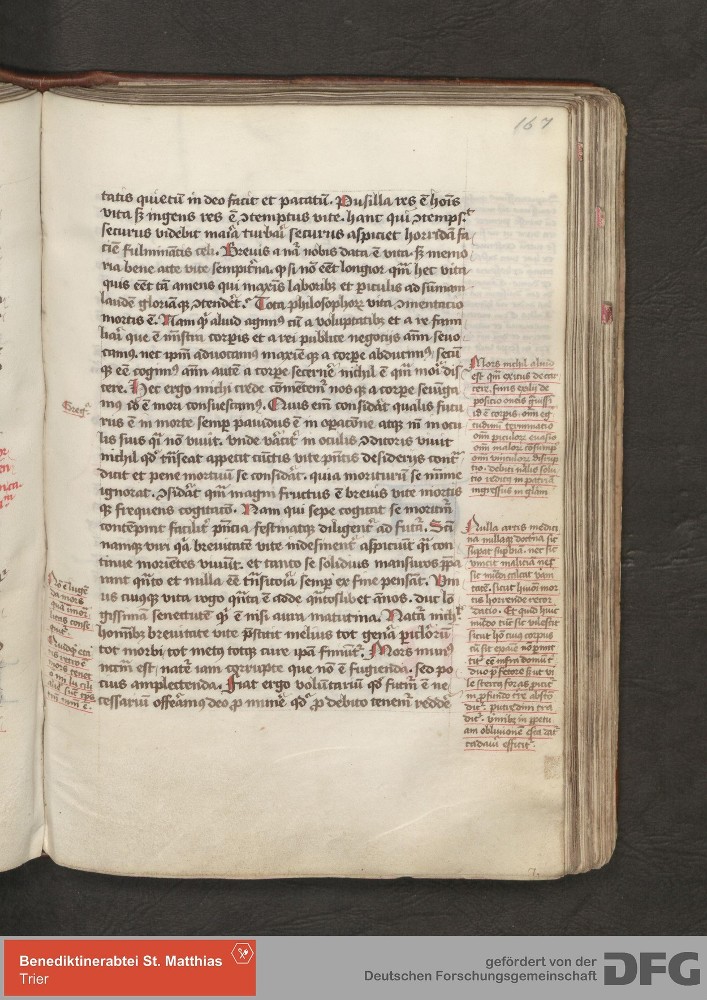 167
tatis quietū in deo facit et pacatū. Pusilla res ē hoīs
vita sz ingens res ē ꝯtemptus vite. hanc qui ꝯtēps.ᵗ
securus videbit maria turbari securus aspiciet horridā fa
ciē fulminātis celi. Brevis a nā nobis data ē vita. sz memo
ria bene acte vite sempitna. q si nō eēt longior qm hec vita
quis eēt tā amens qui maxīs laboribz et piculis ad sūmam
laudē gloriāqz ꝯtenderet. Tota philosophorum vita ꝯmentacio
mortis ē. Nam qd aliud agimus cū a voluptatibz et a re fam
liari que ē mīstra corpis et a rei publice negocijs aīm sevo
camus. nec ipm advocamus maxiēqz a corpe abducimus secū
qz eē cogimus aīm autē a corpe secernē nichil ē qm mori dis
cere. Hec ergo michi crede cōmētemr nosqz a corpe seiūga
mus id ē mori consuescamus. Quis eīm consid'at qualis futu
rus ē in morte semp pavidus ē in opacōne atqz in in ocu
lis sius qi nō vivit. vnde vacit in oculis ꝯditoris vivit
nichil qd trāseat appetit cūctis vite pntis desiderijs cont
dicit et pene mortuū se consid'at. quia moriturū se mīme
ignorat. ꝯsid'at qm magni fructus ē brevis vite mortis
qz frequens cogitatō. Nam qui sepe cogitat se moritm
contēpnit facilit pntia festinatqz diligent ad futa. Scī
namqz viri qa brevitatē vite indesinent aspiciunt qi con
tinue moriētes viuūt. et tanto se solidius mansuros ppa
rant qnto et nulla eē tnsitoria semp ex fine pensāt. Vni
us cuiusqz vita rogo qnta ē adde qntoslibet annos. duc lō
gissimā senectutem qd ē nisi aura matutina. Natā nichl
homībz brevitate vite pstitit melius tot genā piculorū
tot morbi tot metq totqz cure ipā finiūt. Mors munus
necm est. natē iam corrupte que nō ē fugienda. sed po
cius amplectenda. Fiat ergo volūtariū qd futm ē ne
cessariū offeramus deo p mune qd p debito tenem redde
Greg.
Mors nichil aliud
est qm exitus de car
cere. finis exilij de
positio oneris gravissi
id ē corpis. oīm eg
tudinū terminatio
oīm piculorum evasio
oīm malorum cōsumpt
oīm vinculorum disrup
tio. debiti nālis solu
tio reditus in patriā
ingressus in glam
Nulla artis medici
na nullaqz doctrina sic
supat supbiā. nec sic
vincit maliciā nec
sic mūdū calcat vani
tatē. sicut hūoī mor
tis horrende recor
datio. Et quid huic
mūdo tūc sic vilescit
sicut hō cuius corpus
cū sit exaīe nō pmit
tit eē infra domū t
duo p fetore sz ut vi
le stercus foras picit
in pfundo tre absco
dit. putredini tra
dit. v̄mibz in ppetu
am oblivionē esca dat
cadavi efficit.
Nō ē lugen
da mors
quā īmor
litas conse
quit.
7.
Benediktinerabtei St. Matthias
Trier
gefördert von der
Deutschen Forschungsgemeinschaft
DFG